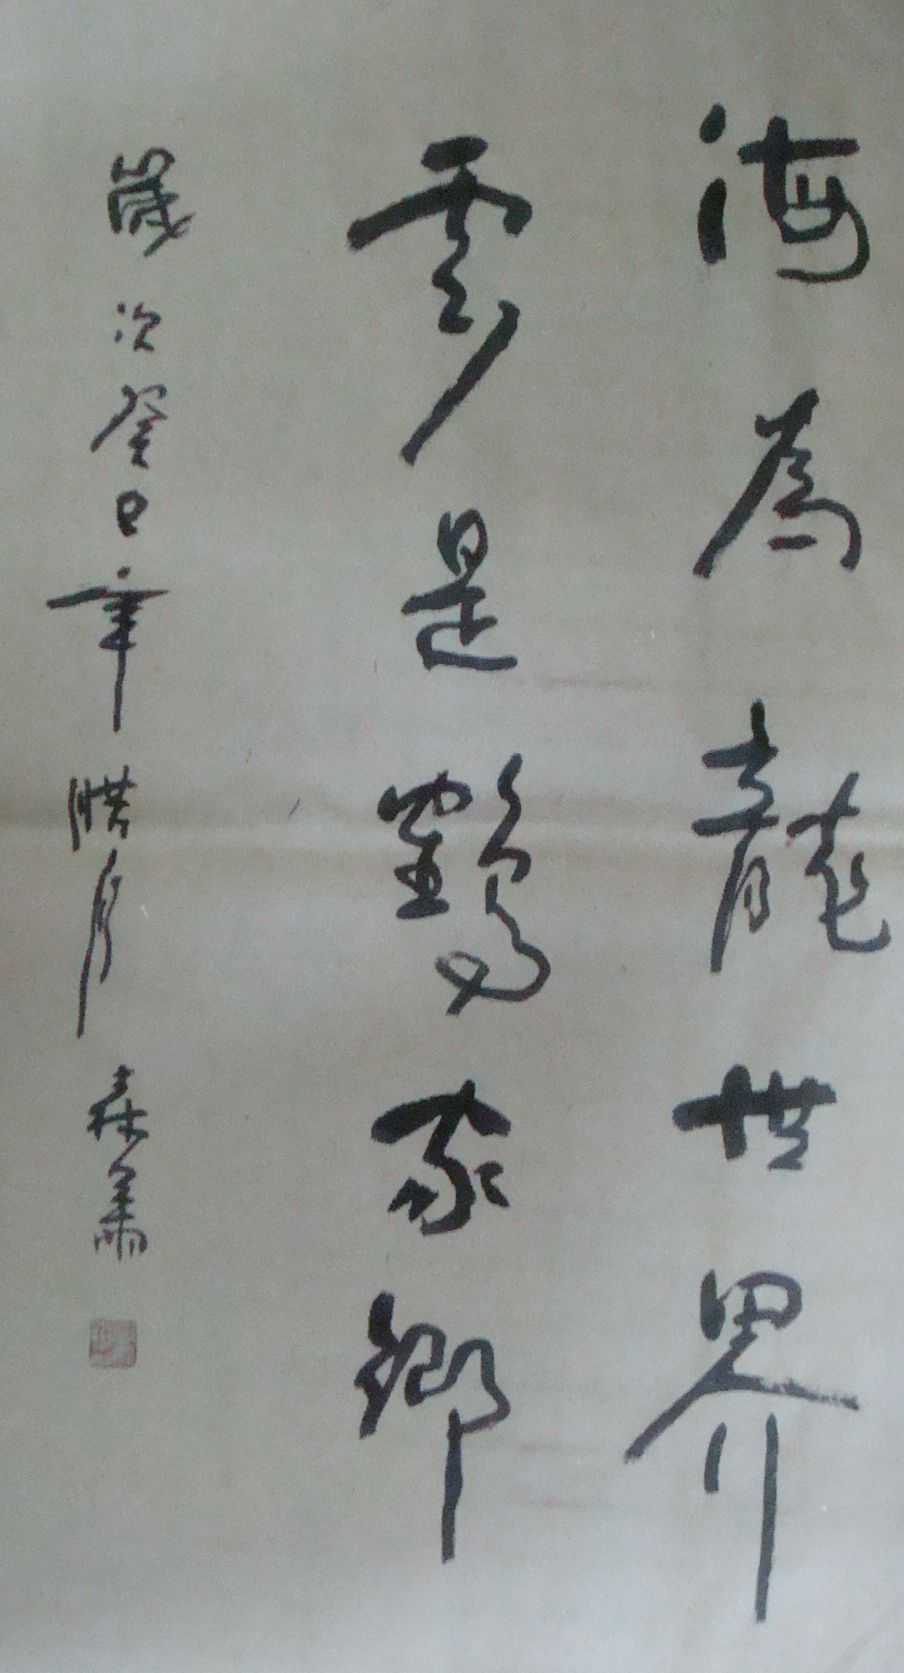 海為龍世界
雲是鶴家鄉
歲次癸巳年腊月